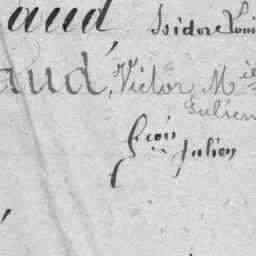 aud Isidore Louis
aud, Victor Mie
Julien
Fcois Julien